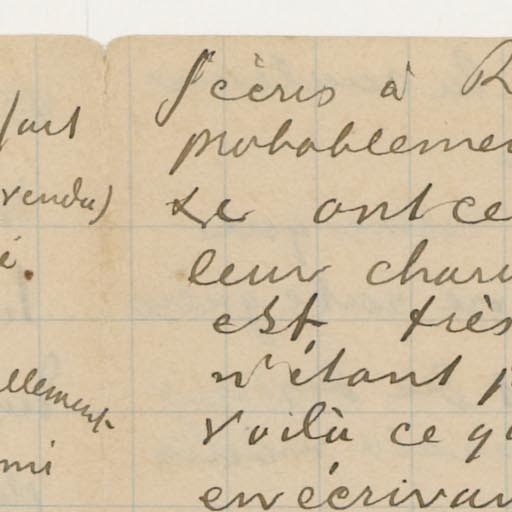 fait
vendu)
é.
ellement
mi
J'écris à R
probablemen
ont ce
leur char
est très
n'étant p
voilà ce q
en écrivan